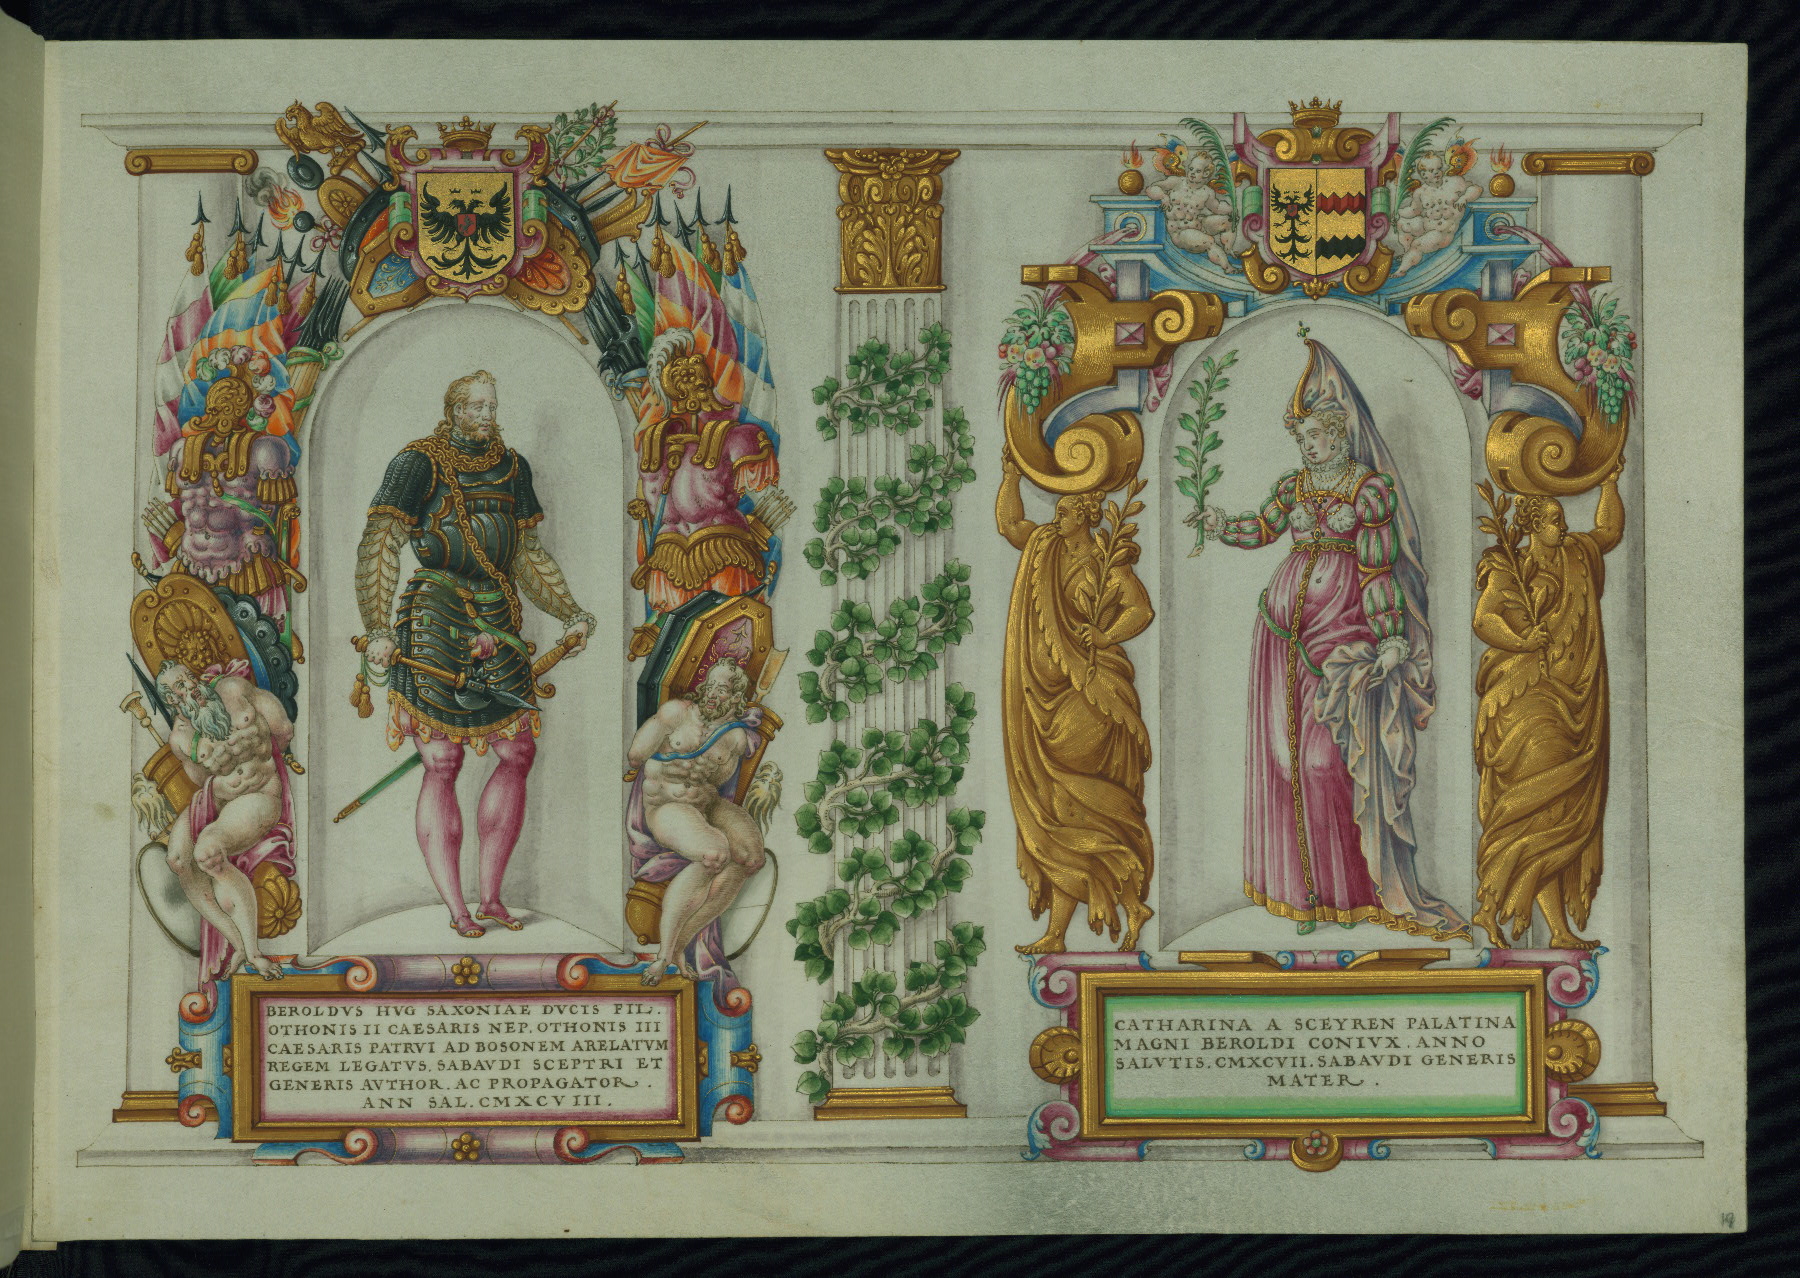 BEROLDVS HVG SAXONIAE DVCIS FIL.
OTHONIS II CAESARIS NEP. OTHONIS III
CAESARIS PATRVI AD BOSONEM ARELATVM
REGEM LEGATVS. SABAVDI SCEPTRI ET
GENERIS AVTHOR. AC PROPAGATOR.
ANN SAL. CMXCVIII.
CATHARINA A SCEYREN PALATINA
MAGNI BEROLDI CONIVX. ANNO
SALVTIS. CMXCVII. SABAVDI GENERIS
MATER.